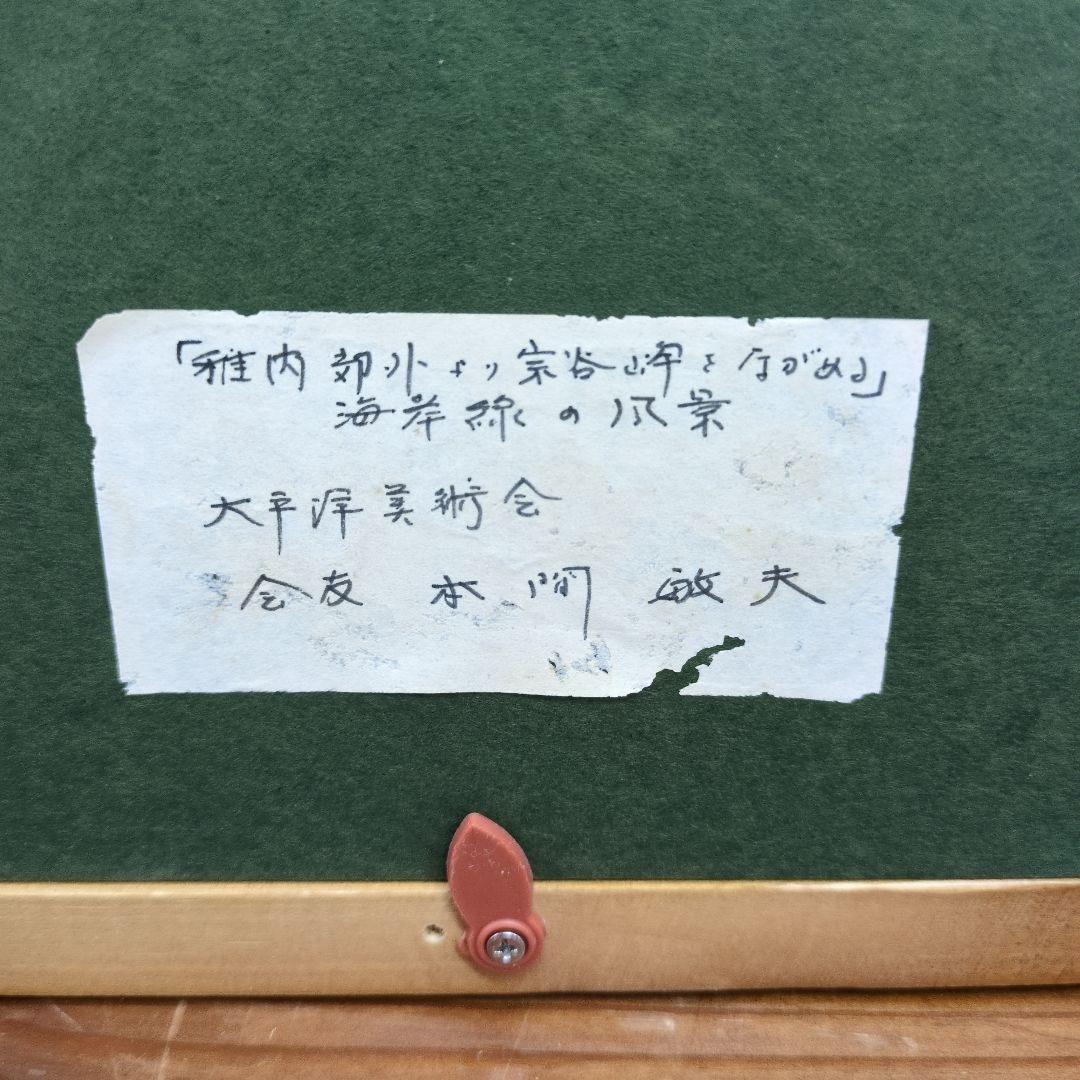 「稚内郊外より宗谷岬をながめる」
海岸線の風景
大平洋美術会
会友 本間 敏夫